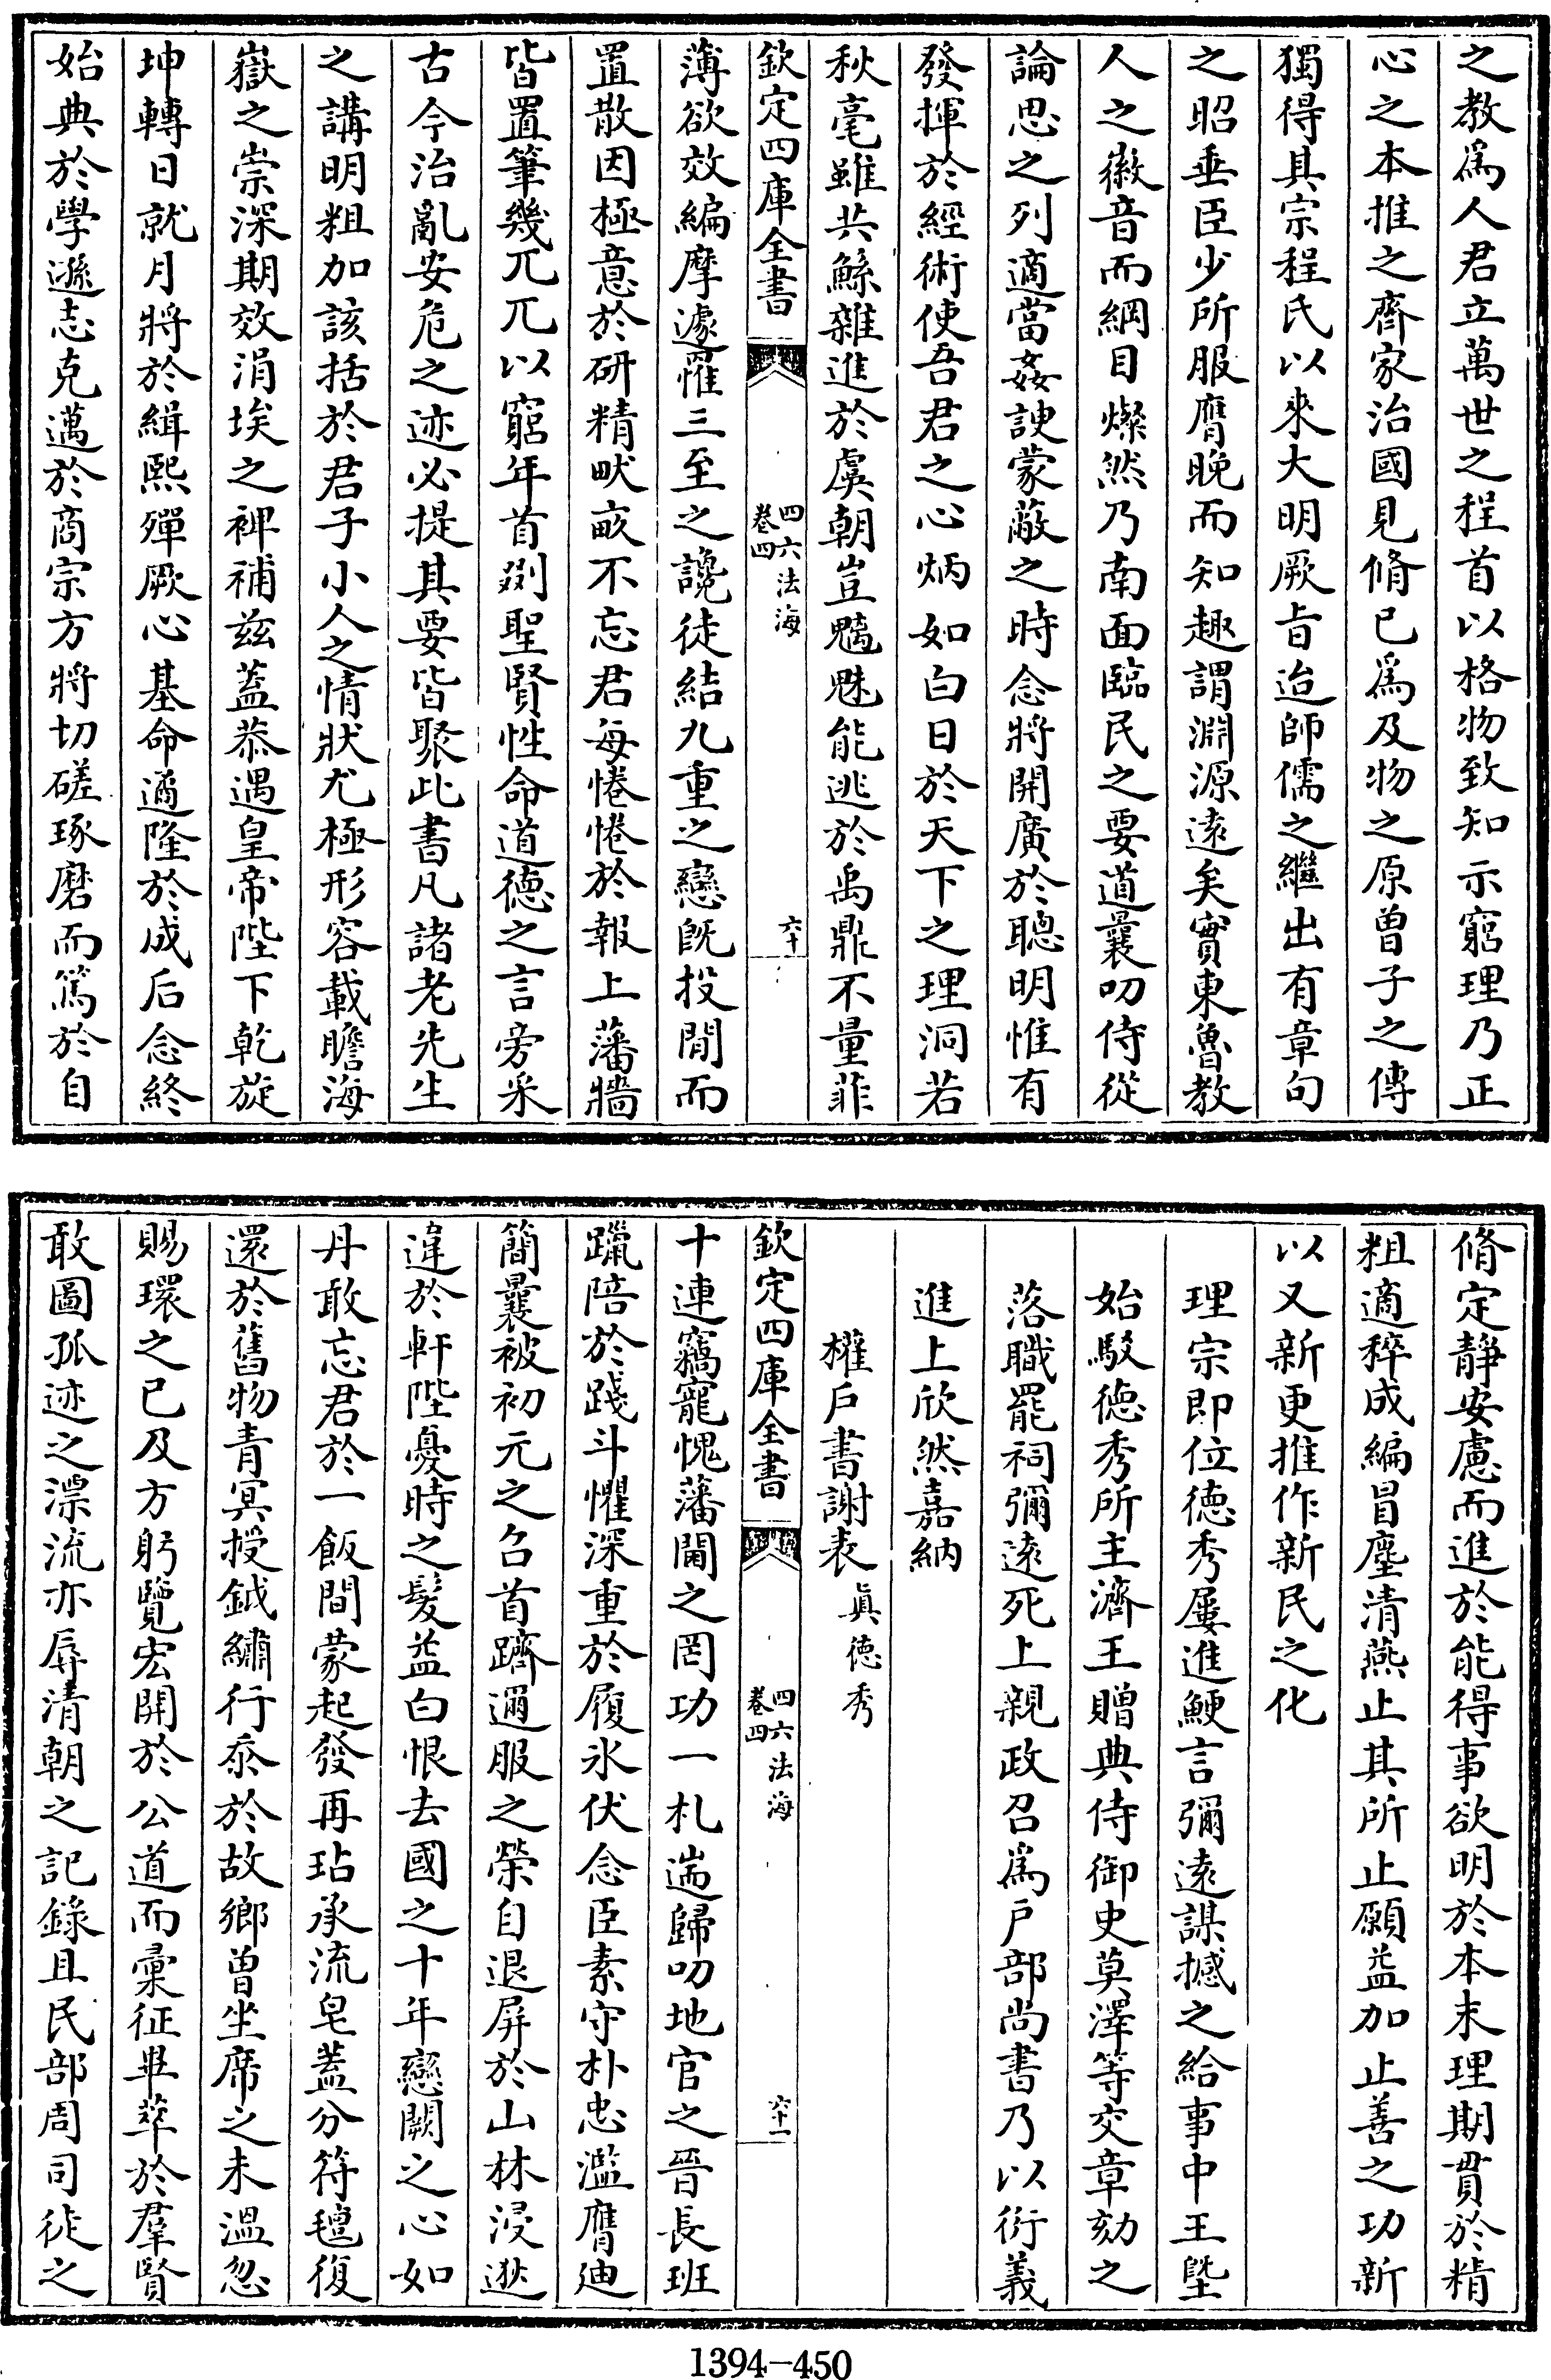 之教爲人君立萬世之程首以格物致知示窮理乃正
心之本推之齊家治國見脩已爲及物之原曾子之傳
獨得其宗程氏以來大明厥旨迨師儒之繼出有章句
之昭垂臣少所服膺晚而知趣謂淵源遠矣實東魯教
人之徽音而綱目燦然乃南面臨民之要道曩叨侍從
論思之列適當姦諛蒙蔽之時念將開廣於聰明惟有
發揮於經術使吾君之心炳如白日於天下之理洞若
秋毫雖共鯀雜進於虞朝豈魑魅能逃於禹鼎不量菲
欽定四庫全書
四六法海
卷四
六十
薄欲效編摩遽罹三至之讒徒結九重之戀旣投閒而
置散因極意於研精畎畝不忘君每惓惓於報上藩牆
皆置筆幾兀兀以窮年首剟聖賢性命道德之言旁采
古今治亂安危之迹必提其要皆聚此書凡諸老先生
之講明粗加該括於君子小人之情狀尤極形容載瞻海
嶽之崇深期效涓埃之裨補兹蓋恭遇皇帝陛下乾旋
坤轉日就月將於緝熙殫厥心基命遹隆於成后念終
始典於學遜志克邁於商宗方將切磋琢磨而篤於自
脩定靜安慮而進於能得事欲明於本末理期貫於精
粗適稡成編冒塵清燕止其所止願益加止善之功新
以又新更推作新民之化
理宗即位德秀屢進鯁言彌遠謀撼之給事中王塈
始駁德秀所主濟王贈典侍御史莫澤等交章劾之
落職罷祠彌遠死上親政召爲戶部尚書乃以衍義
進上欣然嘉納
權戶書謝表 眞德秀
欽定四庫全書
四六法海
卷四
六十一
十連竊寵愧藩閫之罔功一札遄歸叨地官之晉長班
躐陪於踐斗懼深重於履冰伏念臣素守朴忠濫膺迪
簡曩被初元之召首躋邇服之榮自退屏於山林浸逖
違於軒陛憂時之髮益白恨去國之十年戀闕之心如
丹敢忘君於一飯間蒙起發再玷承流皂蓋分符氊復
還於舊物青冥授鉞繡行忝於故鄉曾坐席之未溫忽
賜環之已及方躬覽宏開於公道而彙征畢萃於羣賢
敢圖孤迹之漂流亦辱清朝之記錄且民部周司徒之
1394-450